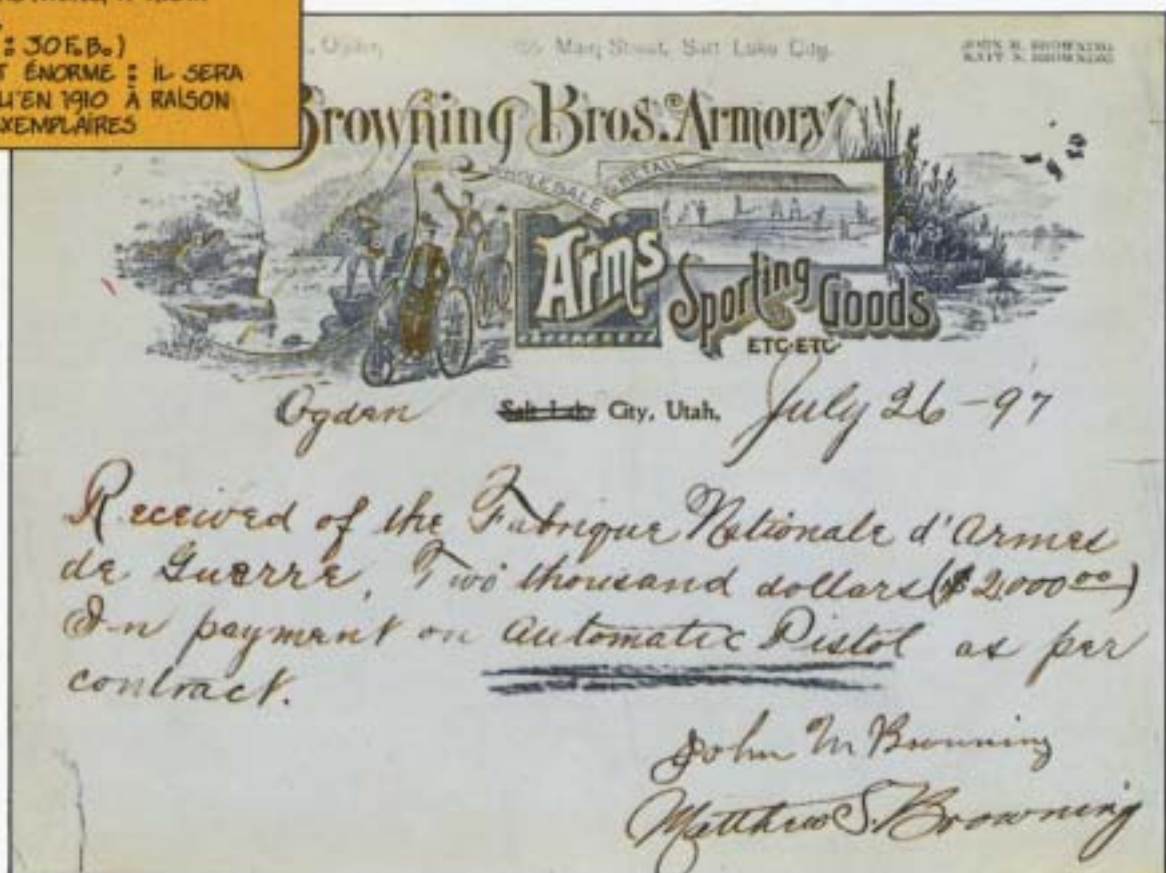 : 30 F.B.)
T ÉNORME : IL SERA
U'EN 1910 À RAISON
XEMPLAIRES
Ogden
Main Street, Salt Lake City.
JOHN M. BROWNING
MATT S. BROWNING
Browning Bros. Armory
WHOLESALE & RETAIL
Arms
Sporting Goods
ETC ETC
Ogden Salt Lake City, Utah, July 26 - 97
Received of the Fabrique Nationale d'Armes
de Guerre, Two thousand dollars ($2,000 00)
In payment on Automatic Pistol as per
contract.
John M Browning
Matthew S. Browning